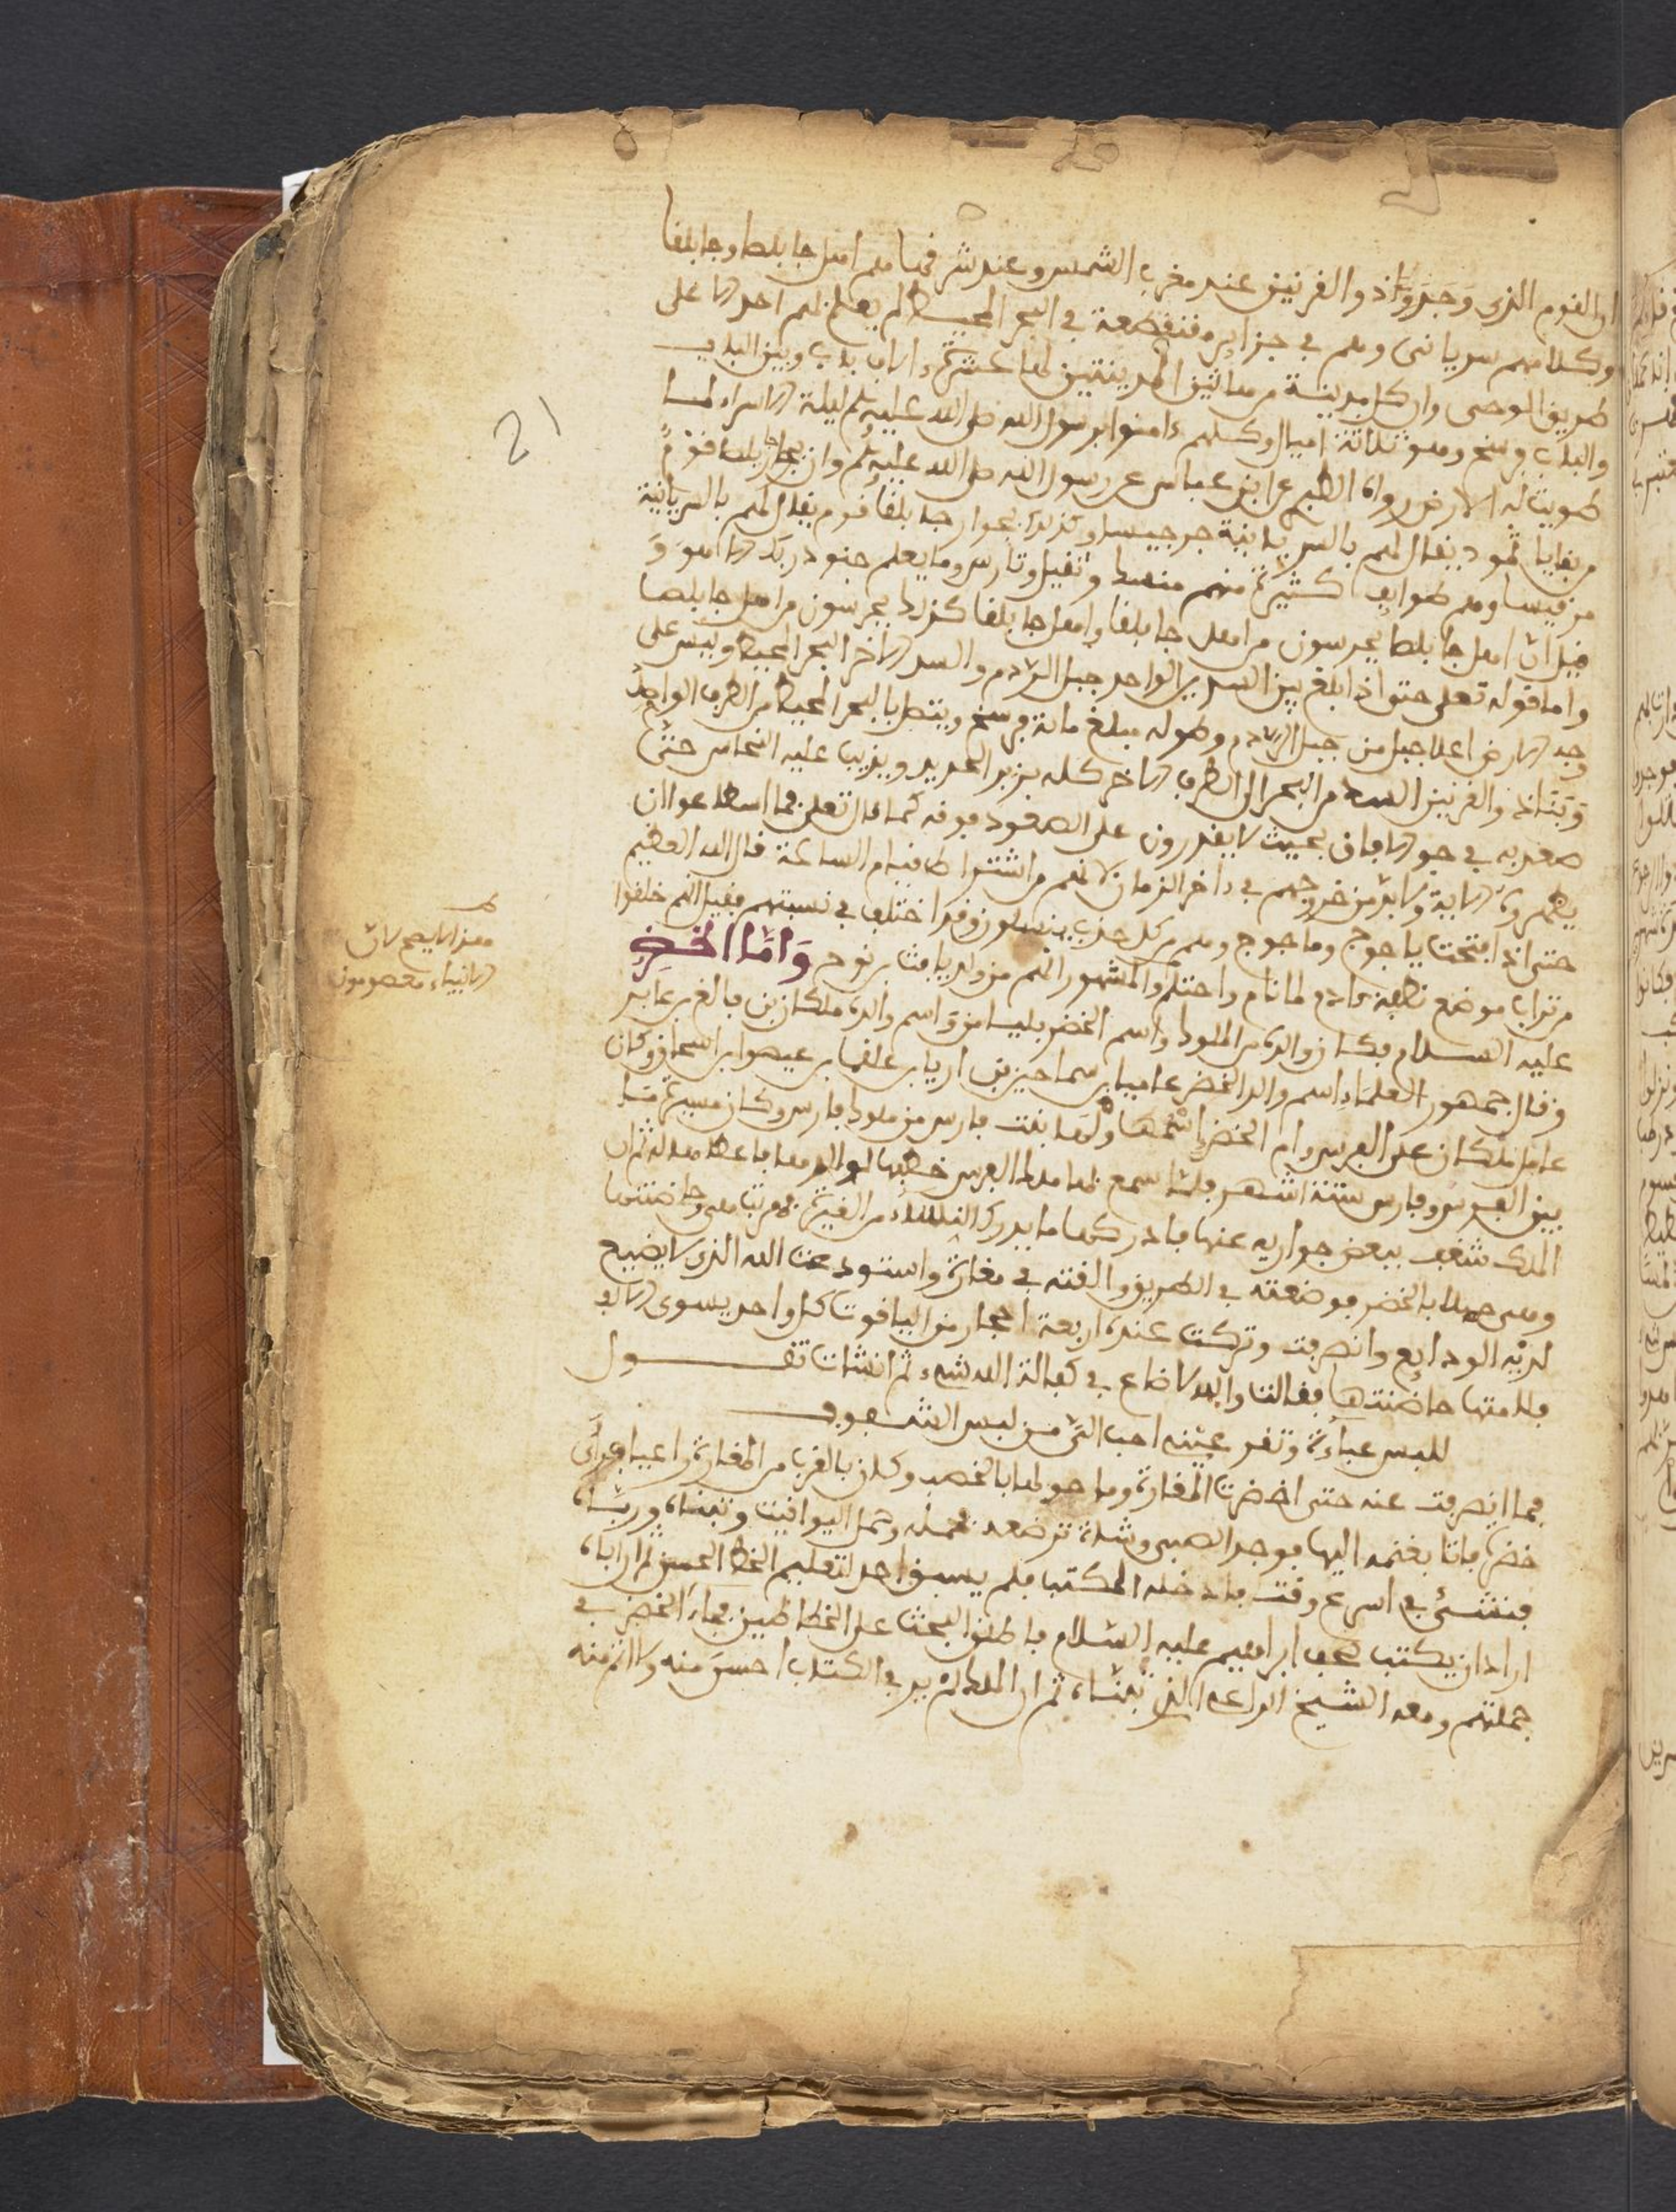 ان القوم الذي وجد وٓا ذو القرنين عند مغرب الشمس وعند شرقها هم اهل جابلصا وجابلقا
وكلامهم سرياني وهم في جزاير منقطعة في البحر المحيط لم يعلم لهم احد الا على
طريق الوحي وان كل مدينة من هاتين المدينتين لها عشرة الاف باب وبين الباب
والباب فرسخ وهو ثلاثة اميال وكلهم ءامنوا برسول الله صلى الله عليه وسلم ليلة الاسراء لما
طويت له الارض رواه الطبري عن ابن عباس عن رسول الله صلى الله عليه وسلم وان بجوار جابلصا قوم
من بقايا ثمود يقال لهم بالسريانية جرجيسا وكذلك بجوار جابلقا قوم يقال لهم بالسريانية
مرقيسا وهم طوايف كثيرة منهم منسك وتفيل وتارس وما يعلم جنود ربك الا هو و
قيل ان اهل جابلصا يحرسون من اهل جابلقا واهل جابلقا كذلك يحرسون من اهل جابلصا
واما قوله تعلى حتى اذا بلغ بين السدين الواحد جبل الردم والسد الاخر البحر المحيط وليس على
وجه الارض اعلا جبل من جبل الردم وطوله مبلغ ماية فرسخ ويتصل بالبحر المحيط من الطرف الواحد
وبنا ذو القرنين السد من البحر الى الطرف الاخر كله بزبر الحديد ويذيب عليه النحاس حتى
صعد به في جو الافاق بحيث لا يقدرون على الصعود فوقه كما قال تعلى فما اسطاعوا ان
يظهروه الاية ولا بد من خروجهم في ءاخر الزمان لانهم من اشتراط قيام الساعة قال الله العظيم
حتى اذا فتحت ياجوج وماجوج وهم من كل حدب ينسلون وقد اختلف في نسبتهم فقيل انهم خلقوا
من تراب موضع نطفة ءادم لما نام واحتلم والمشهور انهم من ولد يافث بن نوح وَامَّا الخَضِرِ
عليه السلام فكان والده من الملوك واسم الخضر بليا من واسم والده ملكان بن فالغ بن عابر
وقال جمهور العلماء اسم والد الخضر عاميا بن سماحين بن اريا بن علقما بن عيصوا بن اسحاق وكان
عاميا ملكا على الفرس وام الخضر اسمها ولها بنت فارس من ملوك فارس وكان مسيرة ما
بين الفرس وفارس ستة اشهر فلما سمع بها ملك الفرس خطبها لوالدها فاعطاها له ثم ان
الملك شغف ببعض جواريه عنها فادركها ما يدرك النساء من الغيرة فهربت هي وحاضنتها
وهي حبلا بالخضر فوضعته في الطريق والقته في مغارة واستودعت الله الذي لا يضيع
لديه الودايع وانصرفت وتركت عنده اربعة احجار من الياقوت كل واحد يسوى الاف
فلامتها حاضنتها فقالت والله لا ضاع في كفالة الله شيء ثم انشات تقول
للبس عباءة وتقر عيني احب الي من لبس الشفوف
فما انصرفت عنه حتى اخضرت المغارة وما حولها بالخصب وكان بالقرب من المغارة راعيا فراى
خضرة فاتا بغنمه اليها فوجد الصبي وشاة ترضعه فحمله وحمل اليواقيت وتبناه ورباه
فنشئ في اسرع وقت فادخله المكتب فلم يسبقه احد لتعليم الخط الحسن ثم ان اباه
اراد ان يكتب صحف ابراهيم عليه السلام فاطلق البحث على الخطاطين فجاء الخضر في
جملتهم ومعه الشيخ الراعي الذي تبناه ثم ان الملك لم ير في الكتاب احسن منه ولا اتم منه
21
هذا لا يصح لان
الانبياء معصومون